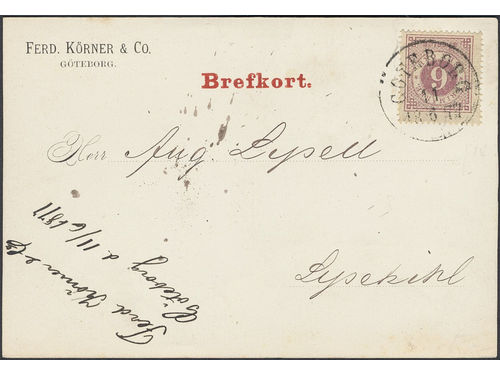 FERD. KÖRNER & Co.
GÖTEBORG.
Brefkort.
GÖTEBORG
6
Herr Aug. Lysell
Lysekihl
Ferd. Körner & Co
Göteborg d. 11/6 1877